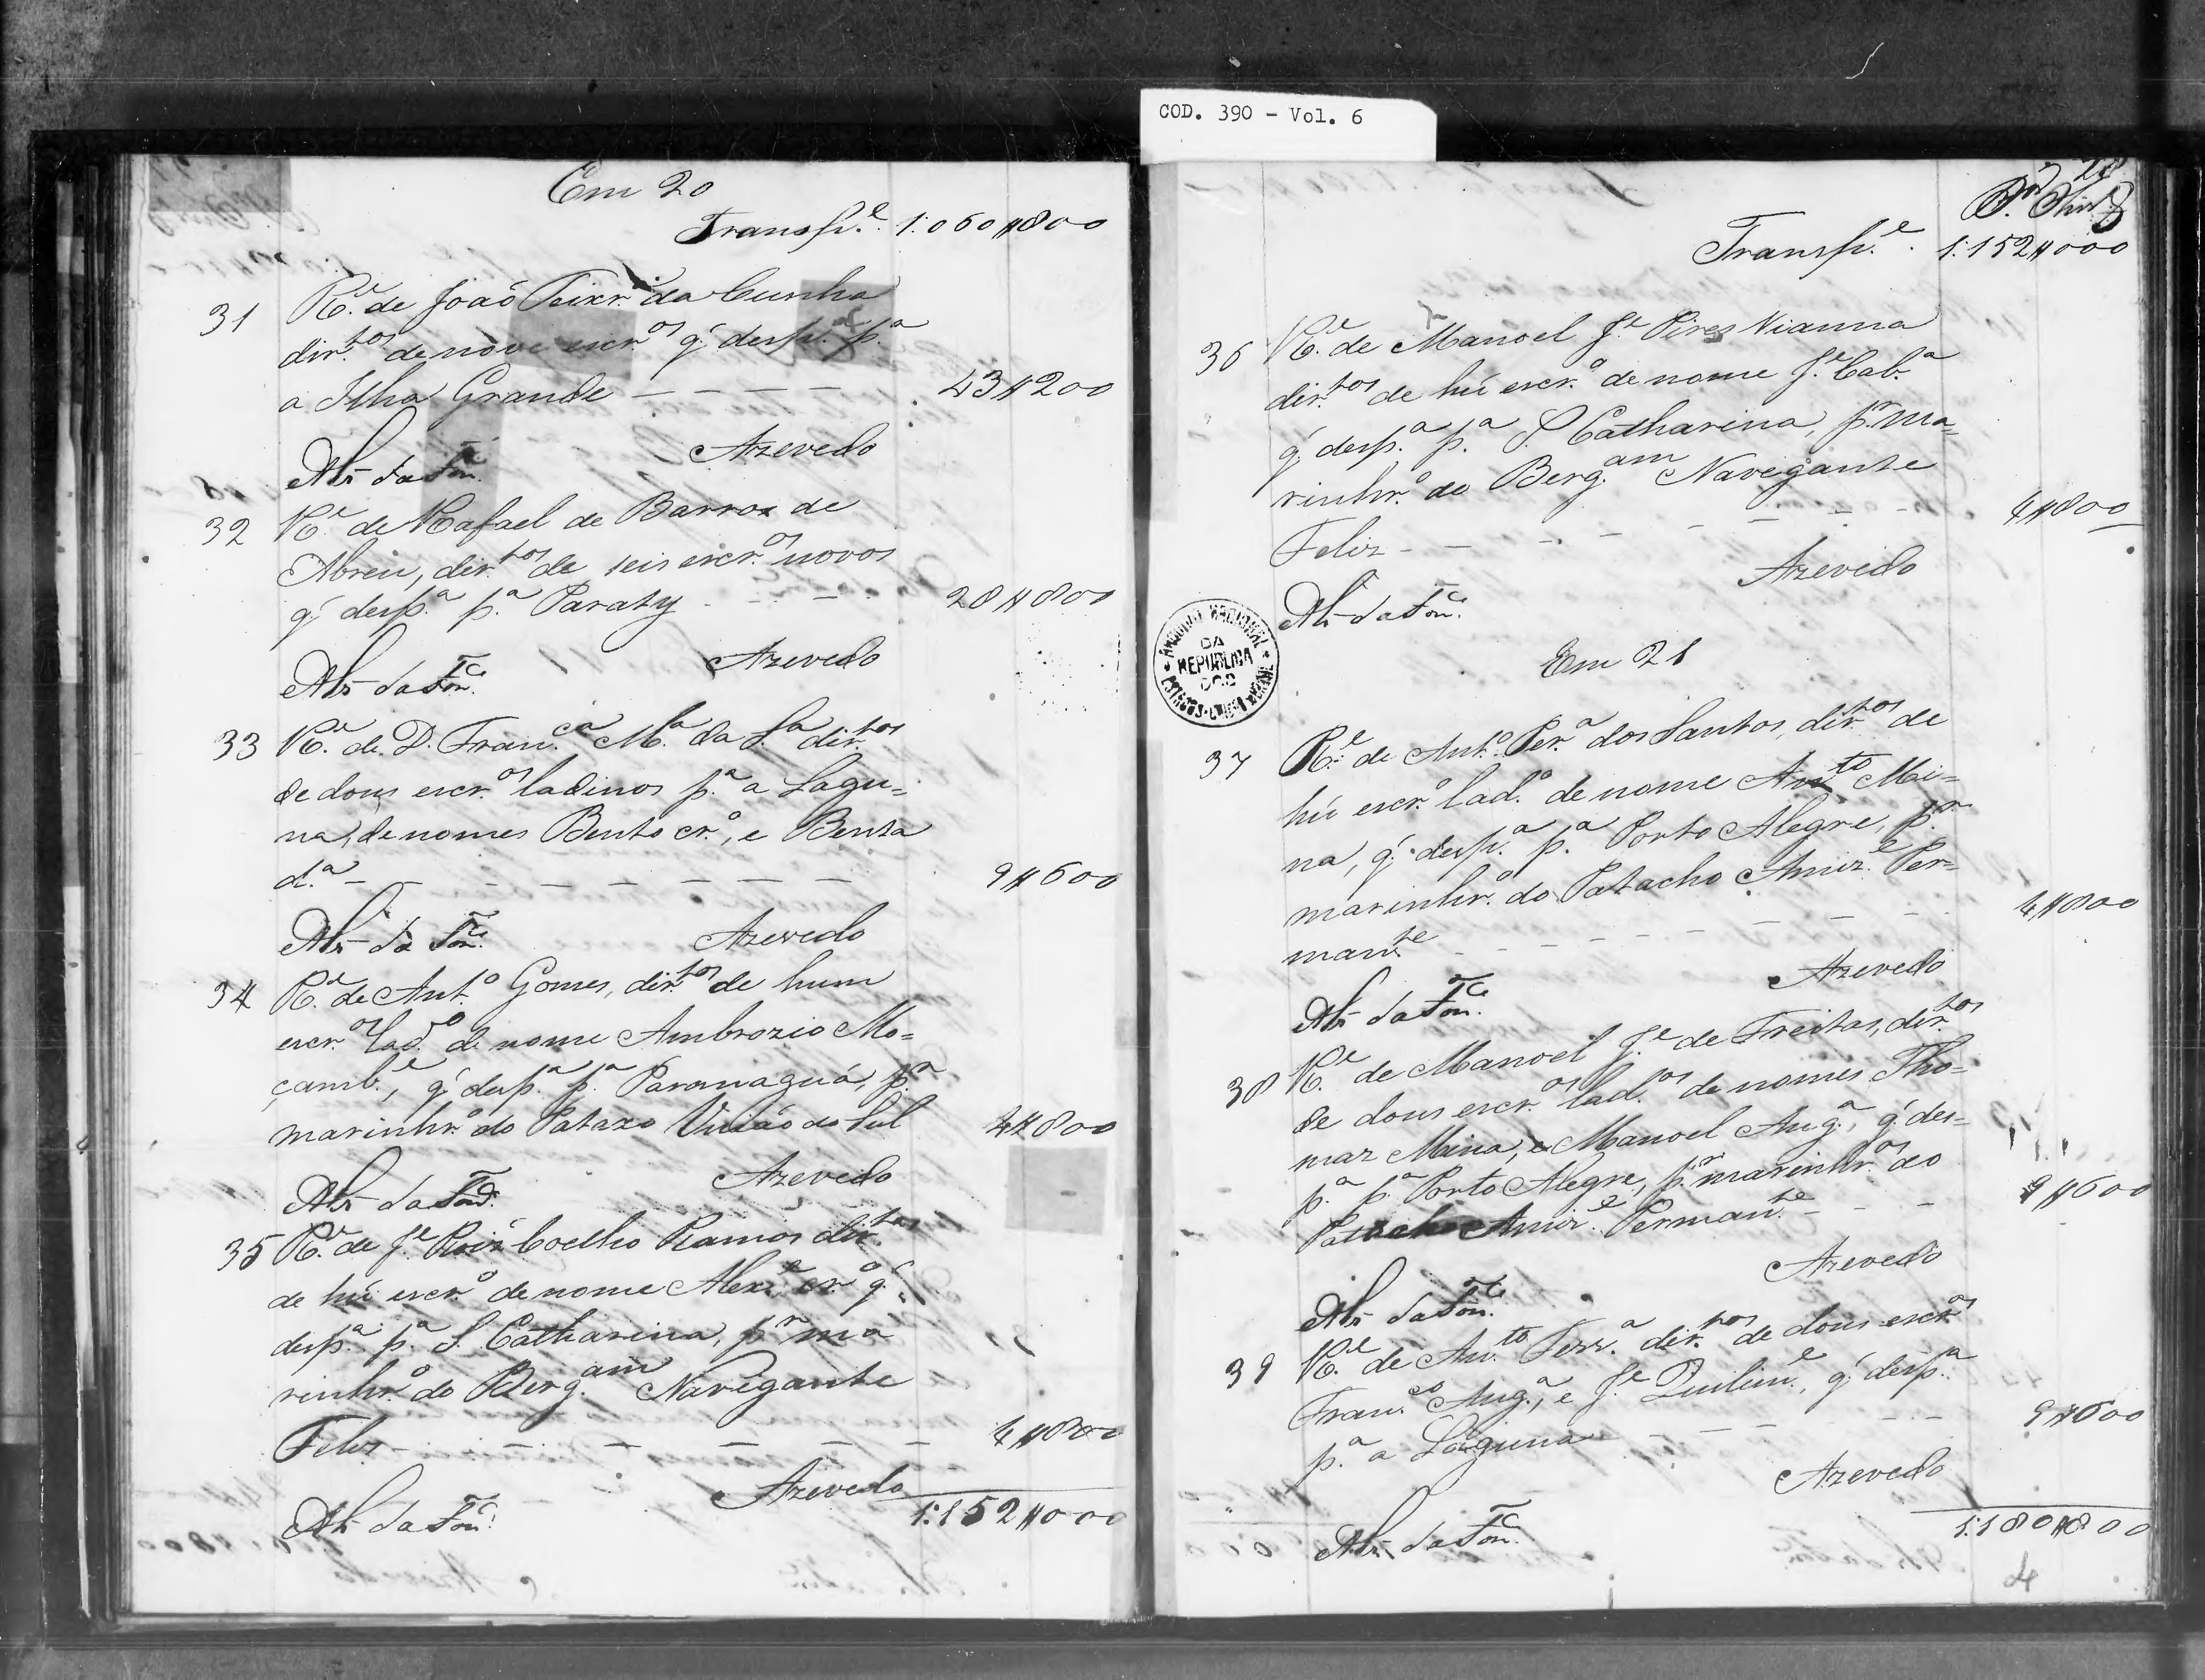 COD. 390 - Vol. 6
Em 20
Transp.e 1:060$800
31 R.e de João Teixr.a da Cunha
dir.tos de nove escr.os q' desp.a p.a
a Ilha Grande 43$200
Azevedo
32 R.e de Rafael de Barros de
Abreu, dir.tos de seis escr.os novos
q' desp.a p.a Paraty 28$800
Azevedo
33 R.e de D. Fran.ca M.a da S.a dir.tos
de dous escr.os ladinos p.a a Lagu=
na, de nomes Bento cr.o, e Benta
d.a 9$600
Azevedo
34 R.e de Ant.o Gomes, dir.tos de hum
escr.o lad.o de nome Ambrozio Mo=
çamb.e, q' desp.a p.a Paranaguá, p.r
marinhr.o do Pataxo União do Sul 4$800
Azevedo
35 R.e de J.e Roiz Coelho Ramos dir.tos
de hú escr.o de nome Alex.e cr.o q'
desp.a p.a S. Catharina, p.r ma
rinhr.o do Berg.am Navegante
Feliz 4$800
Azevedo
1:152$000
28
Transp.e 1:152$000
36 R.e de Manoel J.e Pires Vianna
dir.tos de hú escr.o de nome J.e Cab.a
q' desp.a p.a S. Catharina, p.r ma=
rinhr.o do Berg.am Navegante
Feliz 4$800
Azevedo
ARQUIVO NACIONAL
DA
REPUBLICA
DOS
ESTADOS-UNIDOS
Em 21
37 R.e de Ant.o Per.a dos Santos, dir.tos de
hú escr.o lad.o de nome An.to Mi=
na, q' desp.a p.a Porto Alegre, p.r
marinhr.o do Patacho Amiz.e Per=
man.te 4$800
Azevedo
38 R.e de Manoel J.e de Freitas, dir.tos
de dous escr.os lad.os de nomes Tho=
maz Mina, e Manoel Ang.a, q' des=
p.a p.a Porto Alegre, p.r marinhr.os do
Patacho Amiz.e Perman.te 9$600
Azevedo
39 R.e de An.to Ferr.a dir.tos de dous escr.os
Fran.co Ang.a, e J.e Quilim.e, q' desp.a
p.a a Laguna 9$600
Azevedo
1:180$800